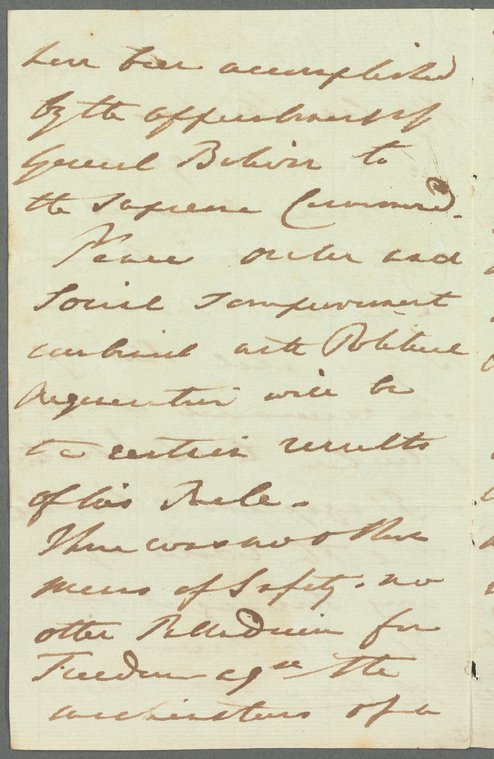 have been accomplished
by the appointment of
General Bolivar to
the Supreme Command.
Peace order and
Social improvement
combined with Political
Organization will be
the certain results
of his Rule.
There was no other
means of Safety. no
other Palladium for
Freedom ag^st the
machinations of a